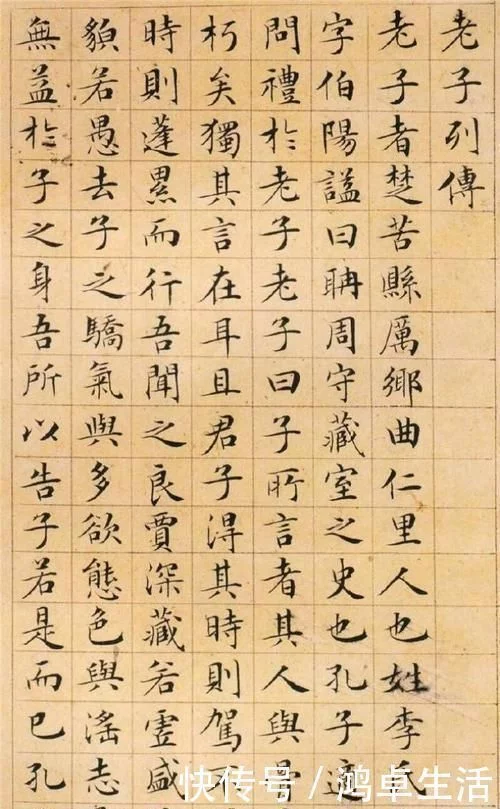 老子列傳
老子者楚苦縣厲鄉曲仁里人也姓李氏
字伯陽謚曰聃周守藏室之史也孔子適
問禮於老子老子曰子所言者其人與骨
朽矣獨其言在耳且君子得其時則駕不
時則蓬累而行吾聞之良賈深藏若虛盛
貌若愚去子之驕氣與多欲態色與淫志
無益於子之身吾所以告子若是而已孔
快传号/鸿卓生活